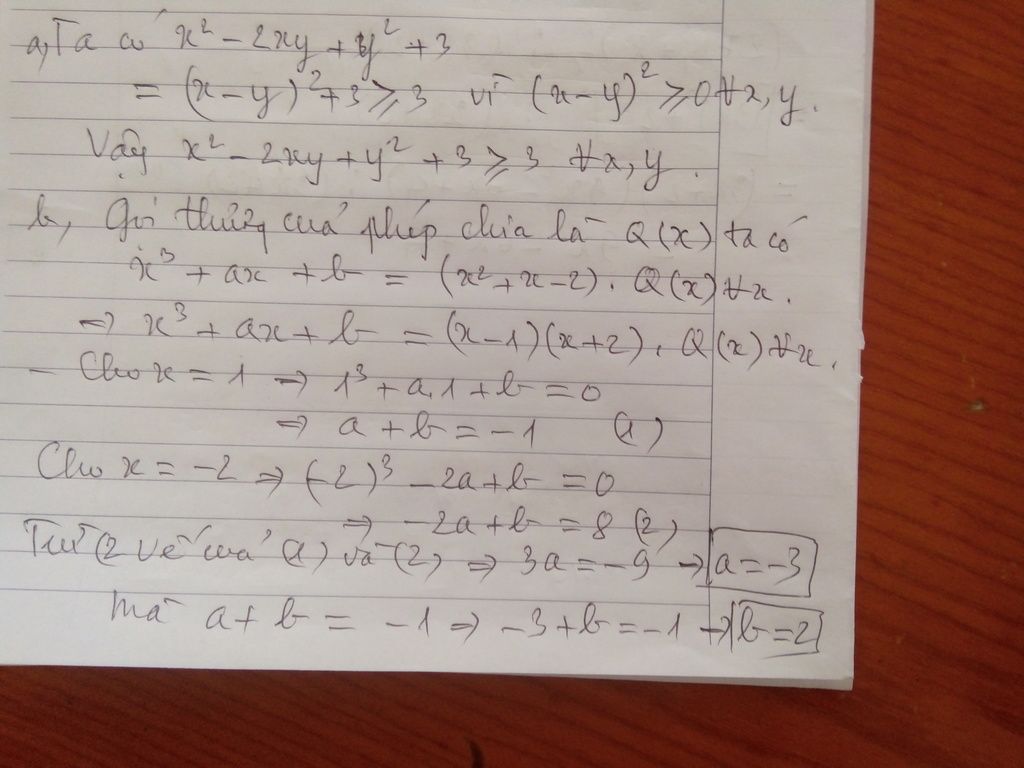 a, Ta có x² - 2xy + y² + 3
= (x-y)² + 3 ⩾ 3 vì (x-y)² ⩾ 0 ∀x, y.
Vậy x² - 2xy + y² + 3 ⩾ 3 ∀x, y.
b, Gọi thương của phép chia là Q(x) ta có
x³ + ax + b = (x² + x - 2). Q(x) ∀x.
⇒ x³ + ax + b = (x-1)(x+2). Q(x) ∀x.
- Cho x = 1 ⇒ 1³ + a.1 + b = 0
⇒ a + b = -1 (1)
Cho x = -2 ⇒ (-2)³ - 2a + b = 0
⇒ -2a + b = 8 (2)
Trừ 2 vế của (1) và (2) ⇒ 3a = -9 → a = -3
mà a + b = -1 ⇒ -3 + b = -1 → b = 2